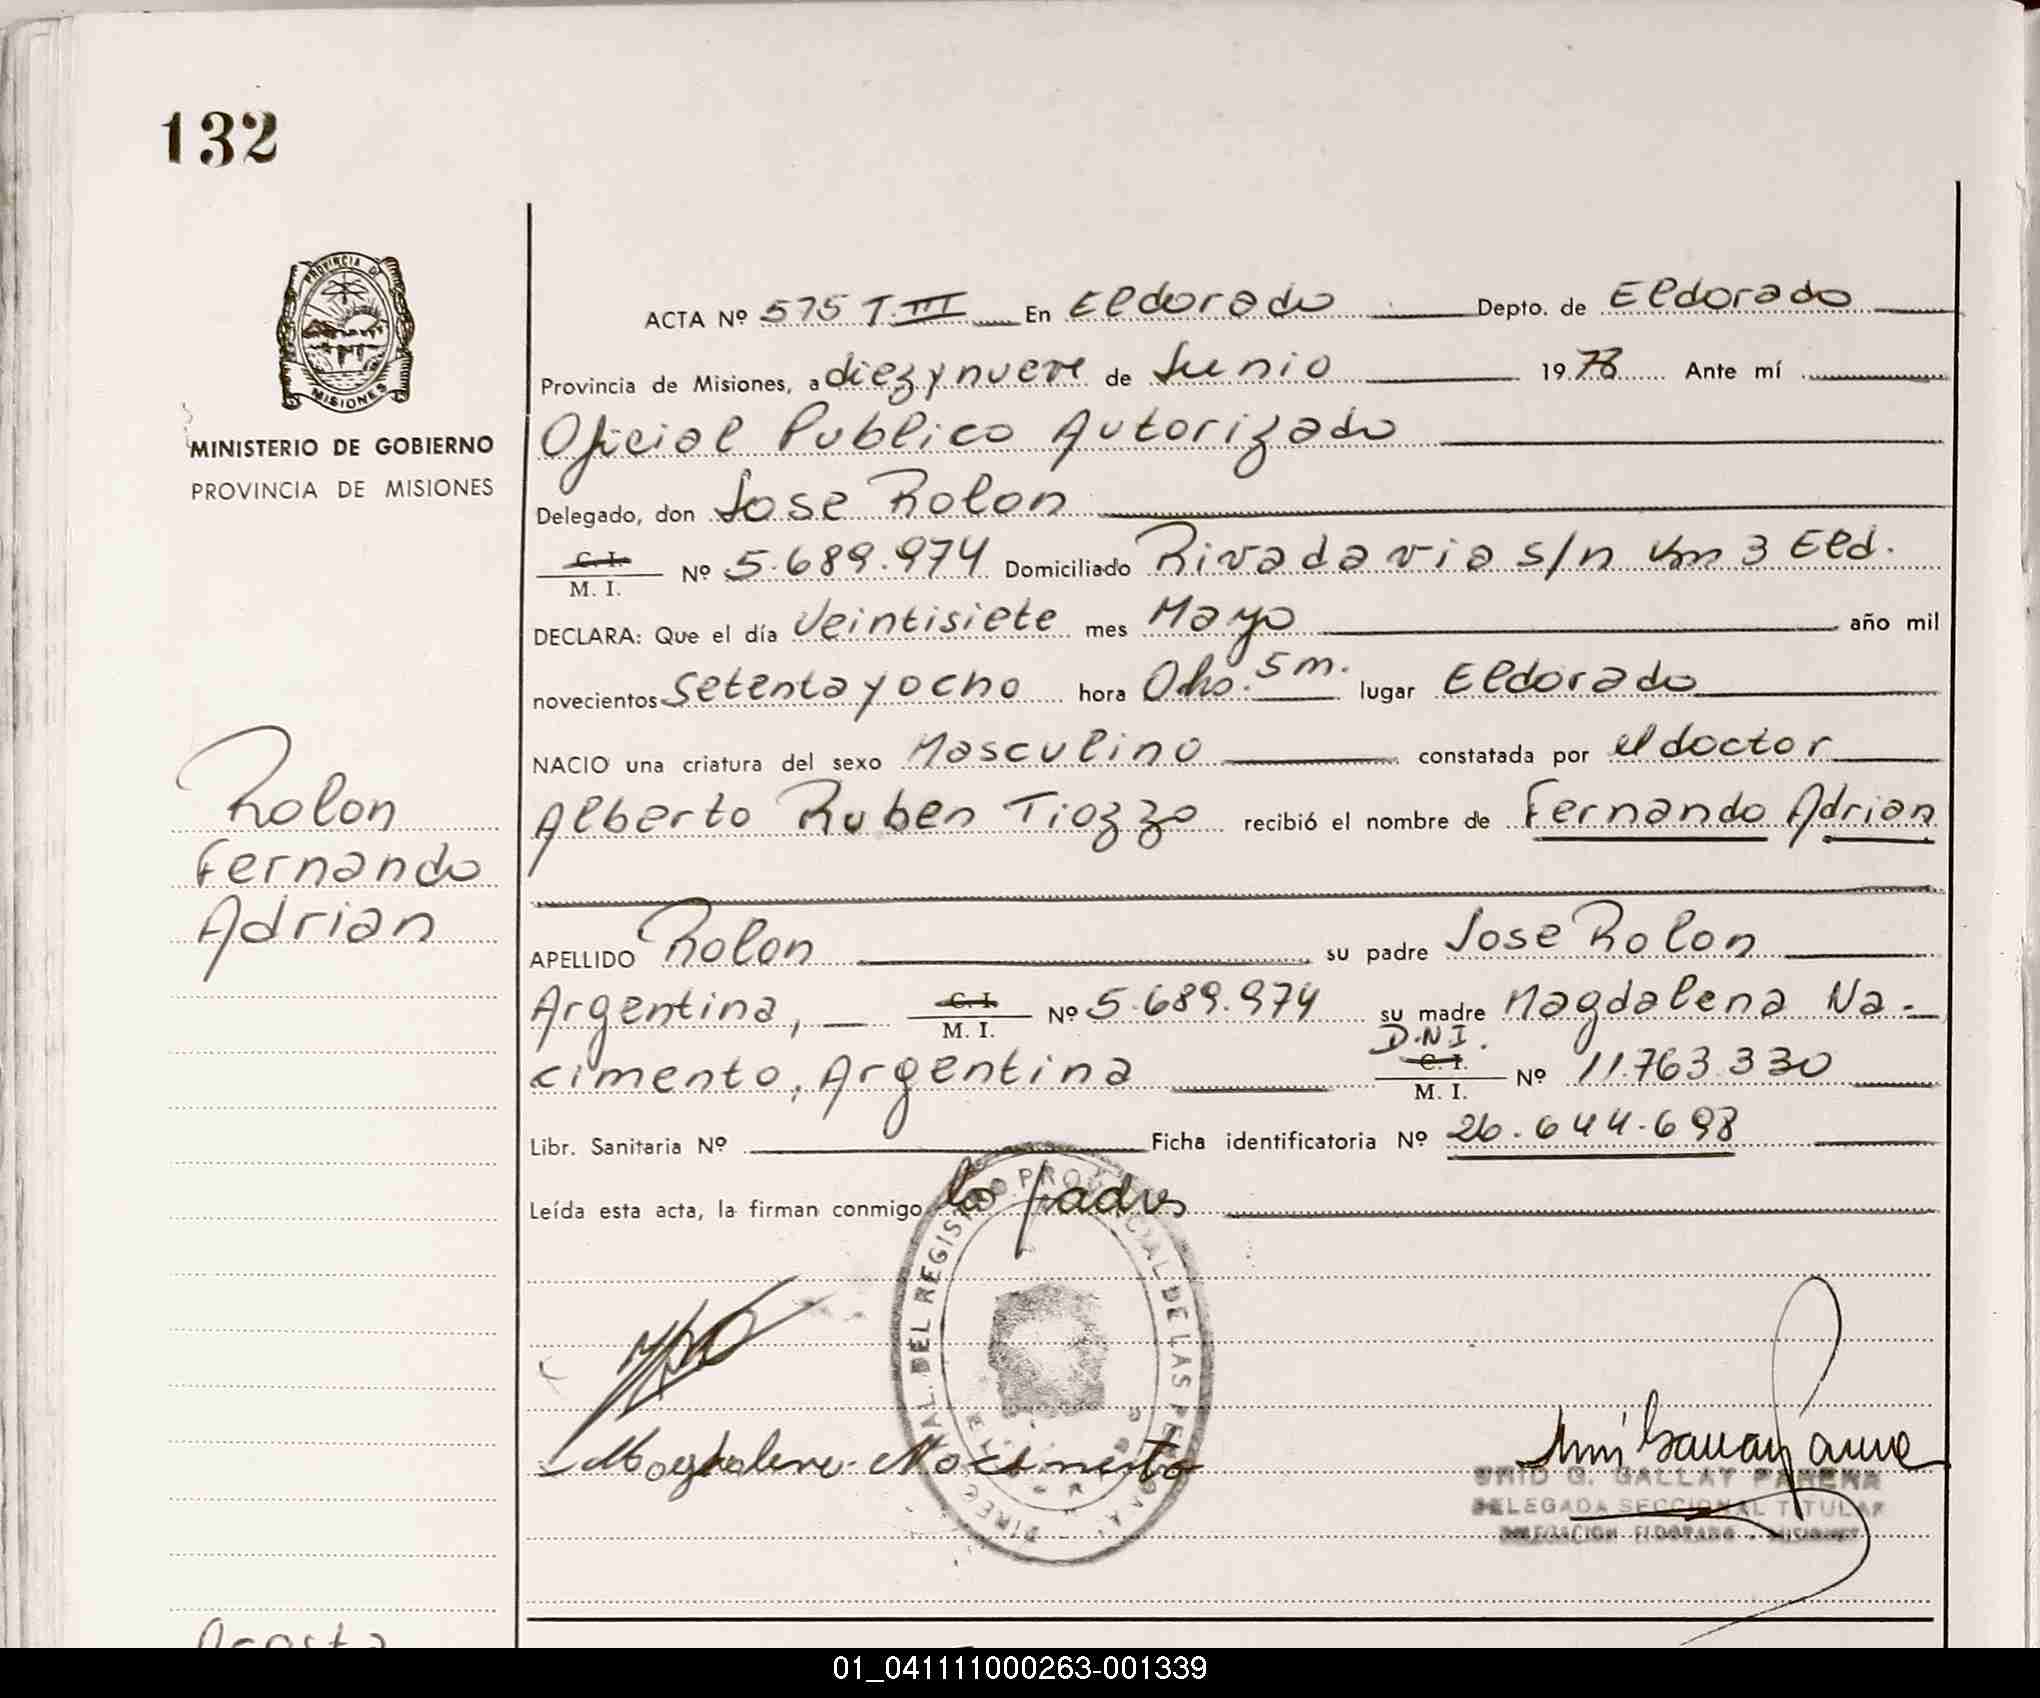 132
PROVINCIA DE
MISIONES
MINISTERIO DE GOBIERNO
PROVINCIA DE MISIONES
ACTA Nº 575 T.III En Eldorado Depto. de Eldorado
Provincia de Misiones, a diez y nueve de Junio 1978 Ante mí
Oficial Publico Autorizado
Delegado, don Jose Rolon
C. I.
M. I. Nº 5.689.974 Domiciliado Rivadavia s/n Km 3 Eld.
DECLARA: Que el día Veintisiete mes Mayo año mil
novecientos Setenta y ocho hora 0 hs. 5 m. lugar Eldorado
NACIO una criatura del sexo Masculino constatada por el doctor
Alberto Ruben Tiozzo recibió el nombre de Fernando Adrian
Rolon
Fernando
Adrian
APELLIDO Rolon su padre Jose Rolon
Argentina, C. I. M. I. Nº 5.689.974 su madre Magdalena Na-
cimento, Argentina D.N.I. C. I. M. I. Nº 11.763.330
Libr. Sanitaria Nº Ficha identificatoria Nº 26.644.698
Leída esta acta, la firman conmigo los padres
Magdalena Nacimento
DEL REGISTRO PROVINCIAL DE LAS
G. GALLAY PARERA
DELEGADA SECCIONAL TITULAR
DELEGACION ELDORADO - MISIONES
01_041111000263-001339